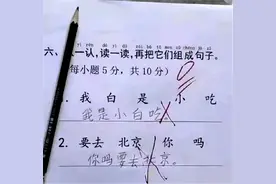 六、认一认，读一读，再把它们组成句子。
（每小题5分，共10分） 0
1. 我 白 是 小 吃
我是小白吃
2. 要去 北京 你 吗
你吗要去北京。